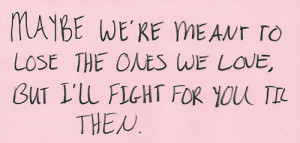 MAYBE WE'RE MEANT TO
LOSE THE ONES WE LOVE,
BUT I'LL FIGHT FOR YOU TIL
THEN.